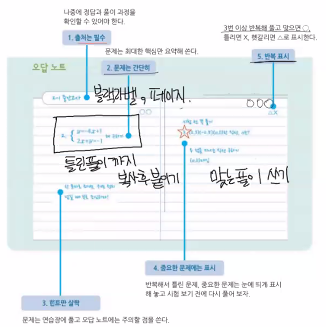 나중에 정답과 풀이 과정을
확인할 수 있어야 한다.
1. 출처는 필수
문제는 최대한 핵심만 요약해 쓴다.
2. 문제는 간단히
3번 이상 반복해 풀고 맞으면 ○,
틀리면 X, 헷갈리면 스로 표시한다.
5. 반복 표시
오답 노트
블랙라벨 9 페이지.
틀린풀이 까지
복사후 붙이기
맞는풀이 쓰기
4. 중요한 문제에는 표시
반복해서 틀린 문제, 중요한 문제는 눈에 띄게 표시
해 놓고 시험 보기 전에 다시 풀어 보자.
3. 힌트만 살짝
문제는 연습장에 풀고 오답 노트에는 주의할 점을 쓴다.